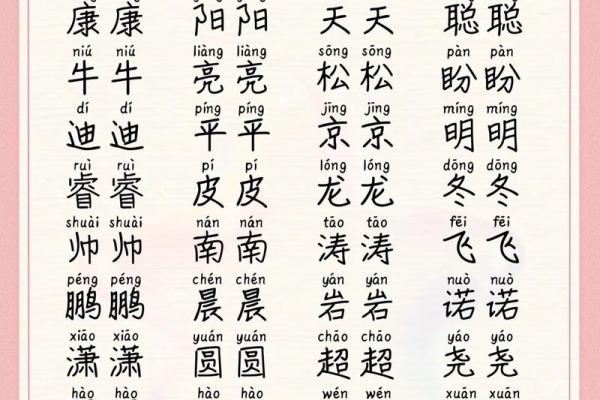 康康 阳阳 天天 聪聪
niú niú liàng liàng sōng sōng pàn pàn
牛牛 亮亮 松松 盼盼
dí dí píng píng jīng jīng míng míng
迪迪 平平 京京 明明
ruì ruì pí pí lóng lóng dōng dōng
睿睿 皮皮 龙龙 冬冬
shuài shuài nán nán tāo tāo fēi fēi
帅帅 南南 涛涛 飞飞
péng péng chén chén yán yán nuò nuò
鹏鹏 晨晨 岩岩 诺诺
xiāo xiāo yuán yuán chāo chāo yáo yáo
潇潇 圆圆 超超 尧尧
hào hào hào hào wén wén xuān xuān